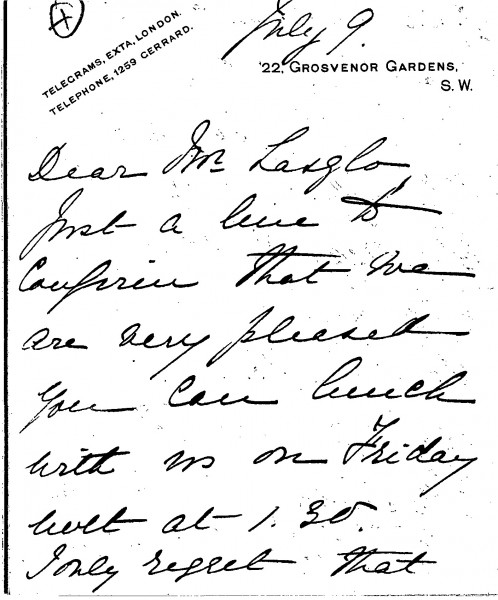 July 9.
TELEGRAMS, EXTA, LONDON.
TELEPHONE, 1259 GERRARD.
22, GROSVENOR GARDENS,
S. W.
Dear Mr. Lasglo
Just a line to
Confirm that we
are very pleased
you can lunch
with us on Friday
at 1. 30.
I only regret that